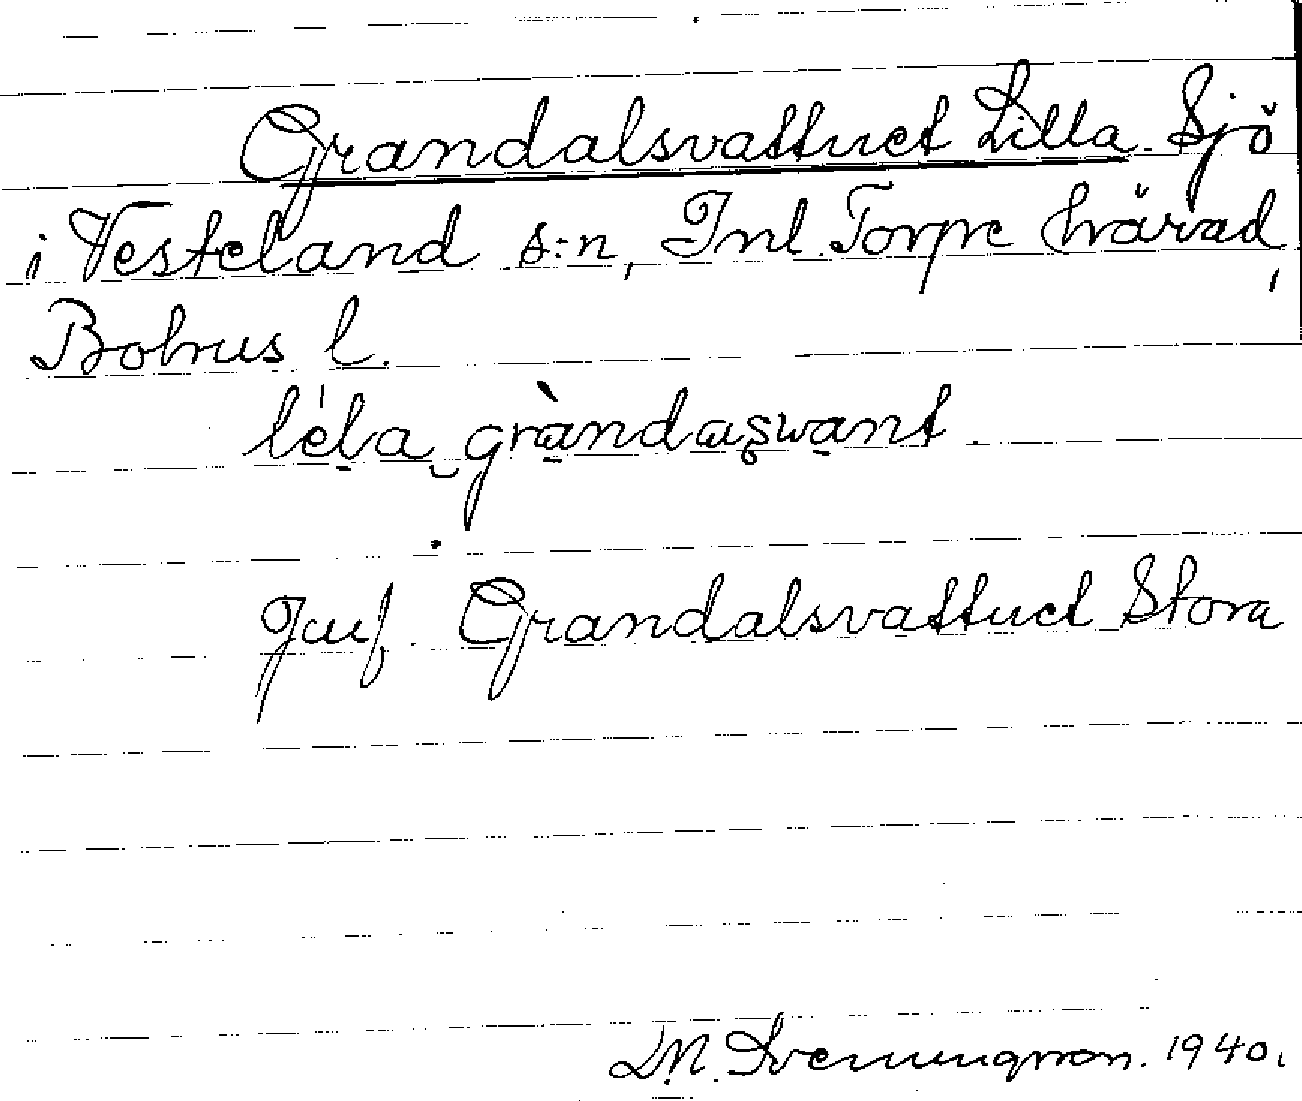 Grandalsvattnet Lilla. Sjö
i Vesteland s:n, Inl. Torpe härad,
Bohus l.
léla gràndaswant
Jmf. Grandalsvattnet Stora
M. Svenungsson. 1940.